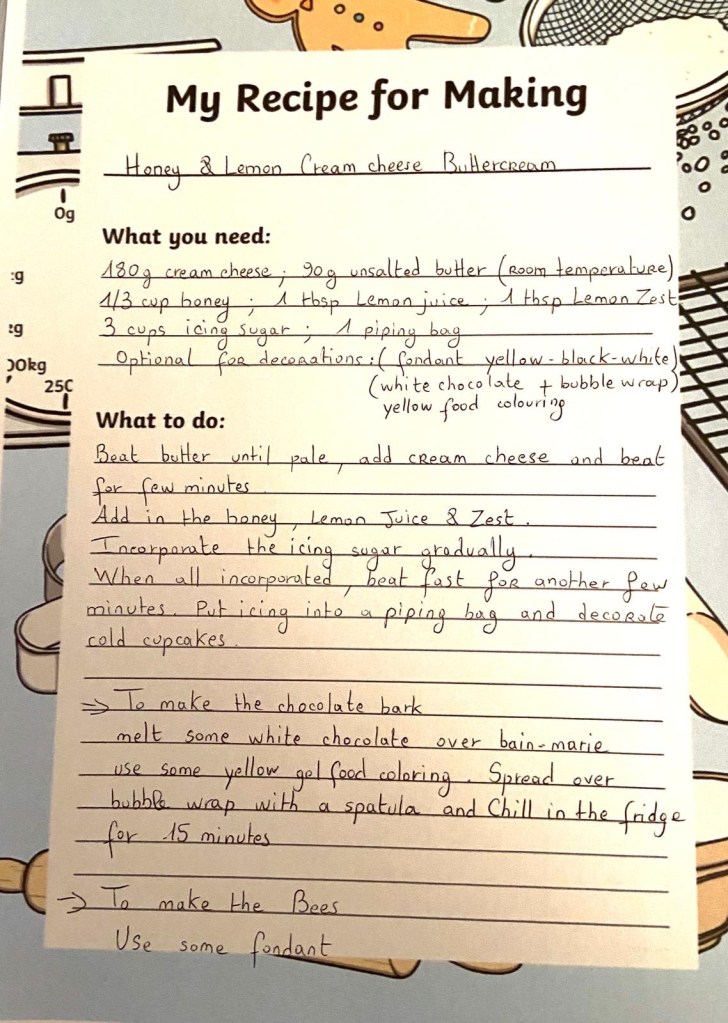 My Recipe for Making
Honey & Lemon Cream cheese Buttercream
0g
What you need:
180g cream cheese ; 90g unsalted butter (Room temperature)
:g
1/3 cup honey ; 1 tbsp Lemon juice ; 1 tbsp Lemon Zest
3 cups icing sugar ; 1 piping bag
Optional for decorations : ( fondant yellow - black - white)
(white chocolate + bubble wrap)
yellow food colouring
00kg
250
What to do:
Beat butter until pale , add cream cheese and beat
for few minutes
Add in the honey , Lemon Juice & Zest .
Incorporate the icing sugar gradually .
When all incorporated , beat fast for another few
minutes. Put icing into a piping bag and decorate
cold cupcakes .
⇒ To make the chocolate bark
melt some white chocolate over bain-marie
use some yellow gel food coloring . Spread over
bubble wrap with a spatula and Chill in the fridge
for 15 minutes
→ To make the Bees
Use some fondant